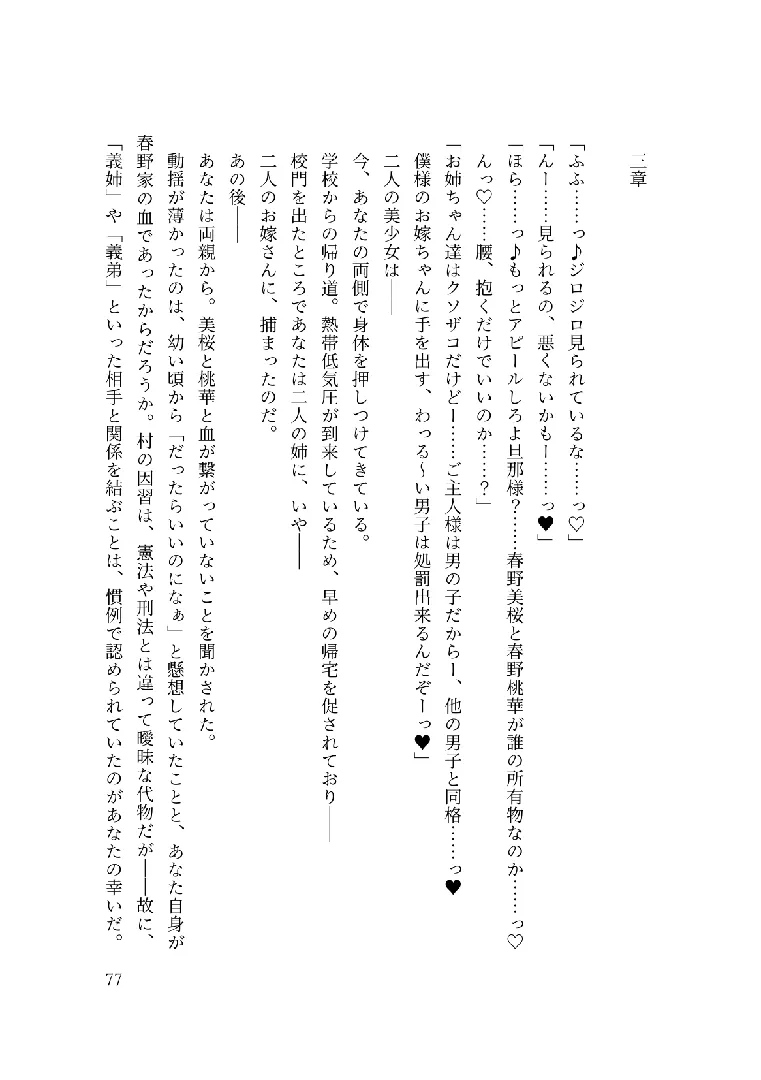 三章
「ふふ……っ♪ジロジロ見られているな……っ♡」
「んー……見られるの、悪くないかもー……っ♥」
「ほら……っ♪もっとアピールしろよ旦那様?……春野美桜と春野桃華が誰の所有物なのか……っ♡
んっ♡……腰、抱くだけでいいのか……?」
「お姉ちゃん達はクソザコだけどー……ご主人様は男の子だからー、他の男子と同格……っ♥
僕様のお嫁ちゃんに手を出す、わっる〜い男子は処罰出来るんだぞーっ♥」
二人の美少女は――
今、あなたの両側で身体を押しつけてきている。
学校からの帰り道。熱帯低気圧が到来しているため、早めの帰宅を促されており――
校門を出たところであなたは二人の姉に、いや――
二人のお嫁さんに、捕まったのだ。
あの後――
あなたは両親から。美桜と桃華と血が繋がっていないことを聞かされた。
動揺が薄かったのは、幼い頃から「だったらいいのになぁ」と懸想していたことと、あなた自身が
春野家の血であったからだろうか。村の因習は、憲法や刑法とは違って曖昧な代物だが――故に、
「義姉」や「義弟」といった相手と関係を結ぶことは、慣例で認められていたのがあなたの幸いだ。
77